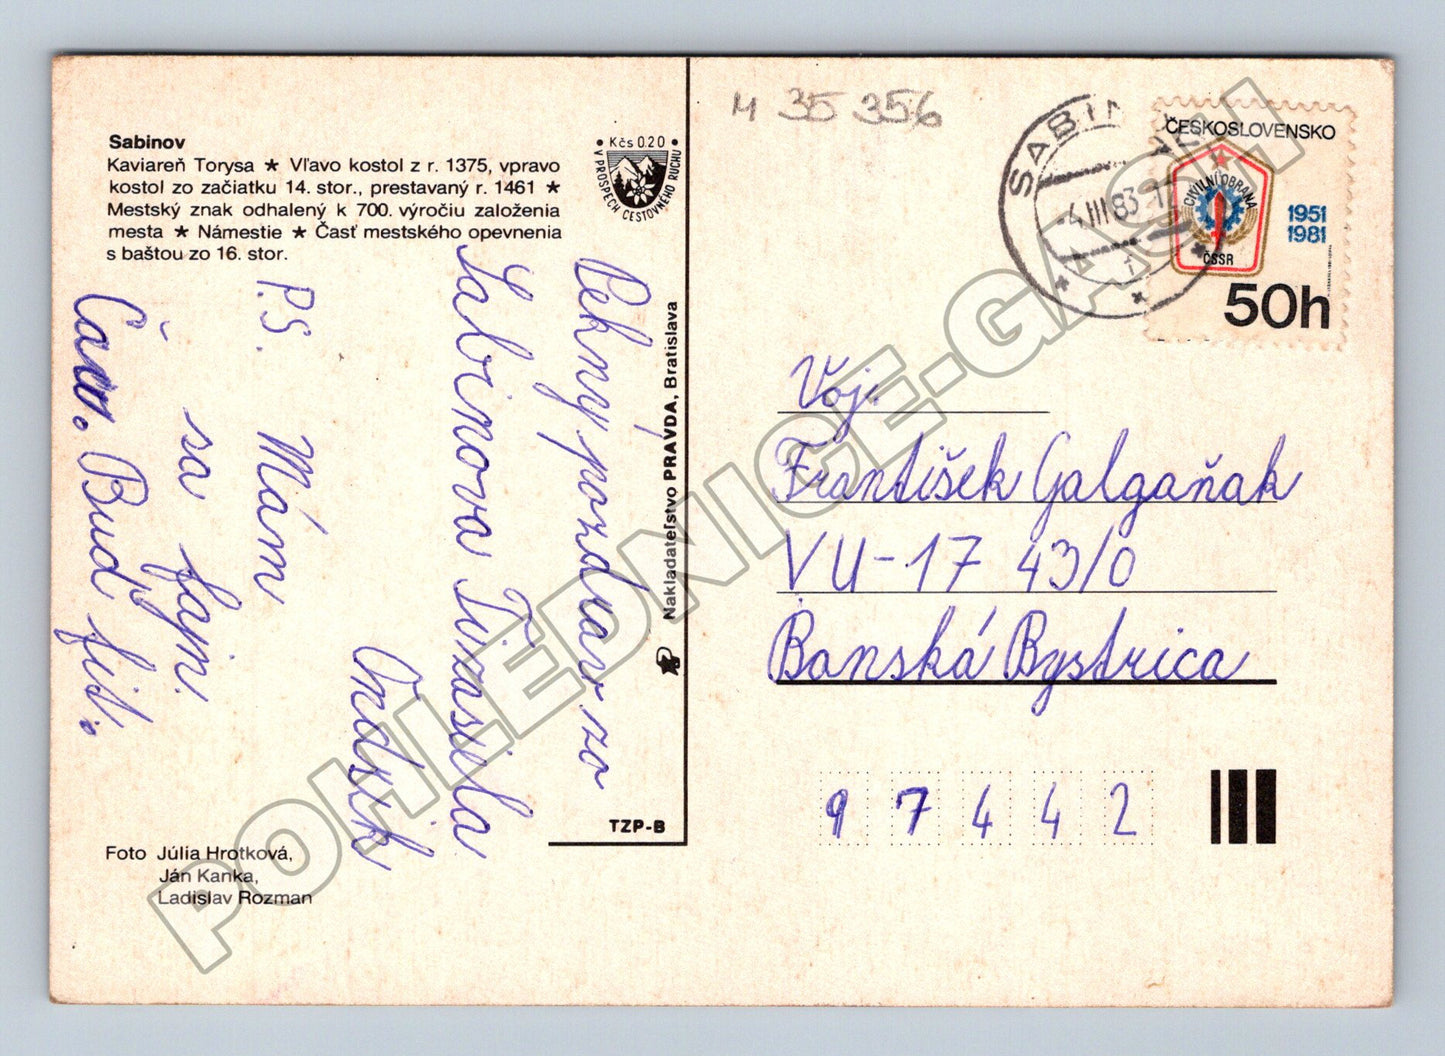 Sabinov
Kaviareň Torysa ★ Vľavo kostol z r. 1375, vpravo
kostol zo začiatku 14. stor., prestavaný r. 1461 ★
Mestský znak odhalený k 700. výročiu založenia
mesta ★ Námestie ★ Časť mestského opevnenia
s baštou zo 16. stor.
• Kčs 0.20 •
V PROSPECH CESTOVNÉHO RUCHU
Pekný pozdrav zo
Sabinova Ti zasiela
Ondrik
P.S. Mám
sa fajn.
Čau. Buď fit.
Nakladateľstvo PRAVDA, Bratislava
TZP-B
Foto Júlia Hrotková,
Ján Kanka,
Ladislav Rozman
M 35 356
SABIN
-4.III.83-1
1
ČESKOSLOVENSKO
CIVILNÍ OBRANA
ČSSR
1951
1981
50h
Voj.
František Galgaňak
VU-17 43/0
Banská Bystrica
97442
POHLEDNICE-GASH